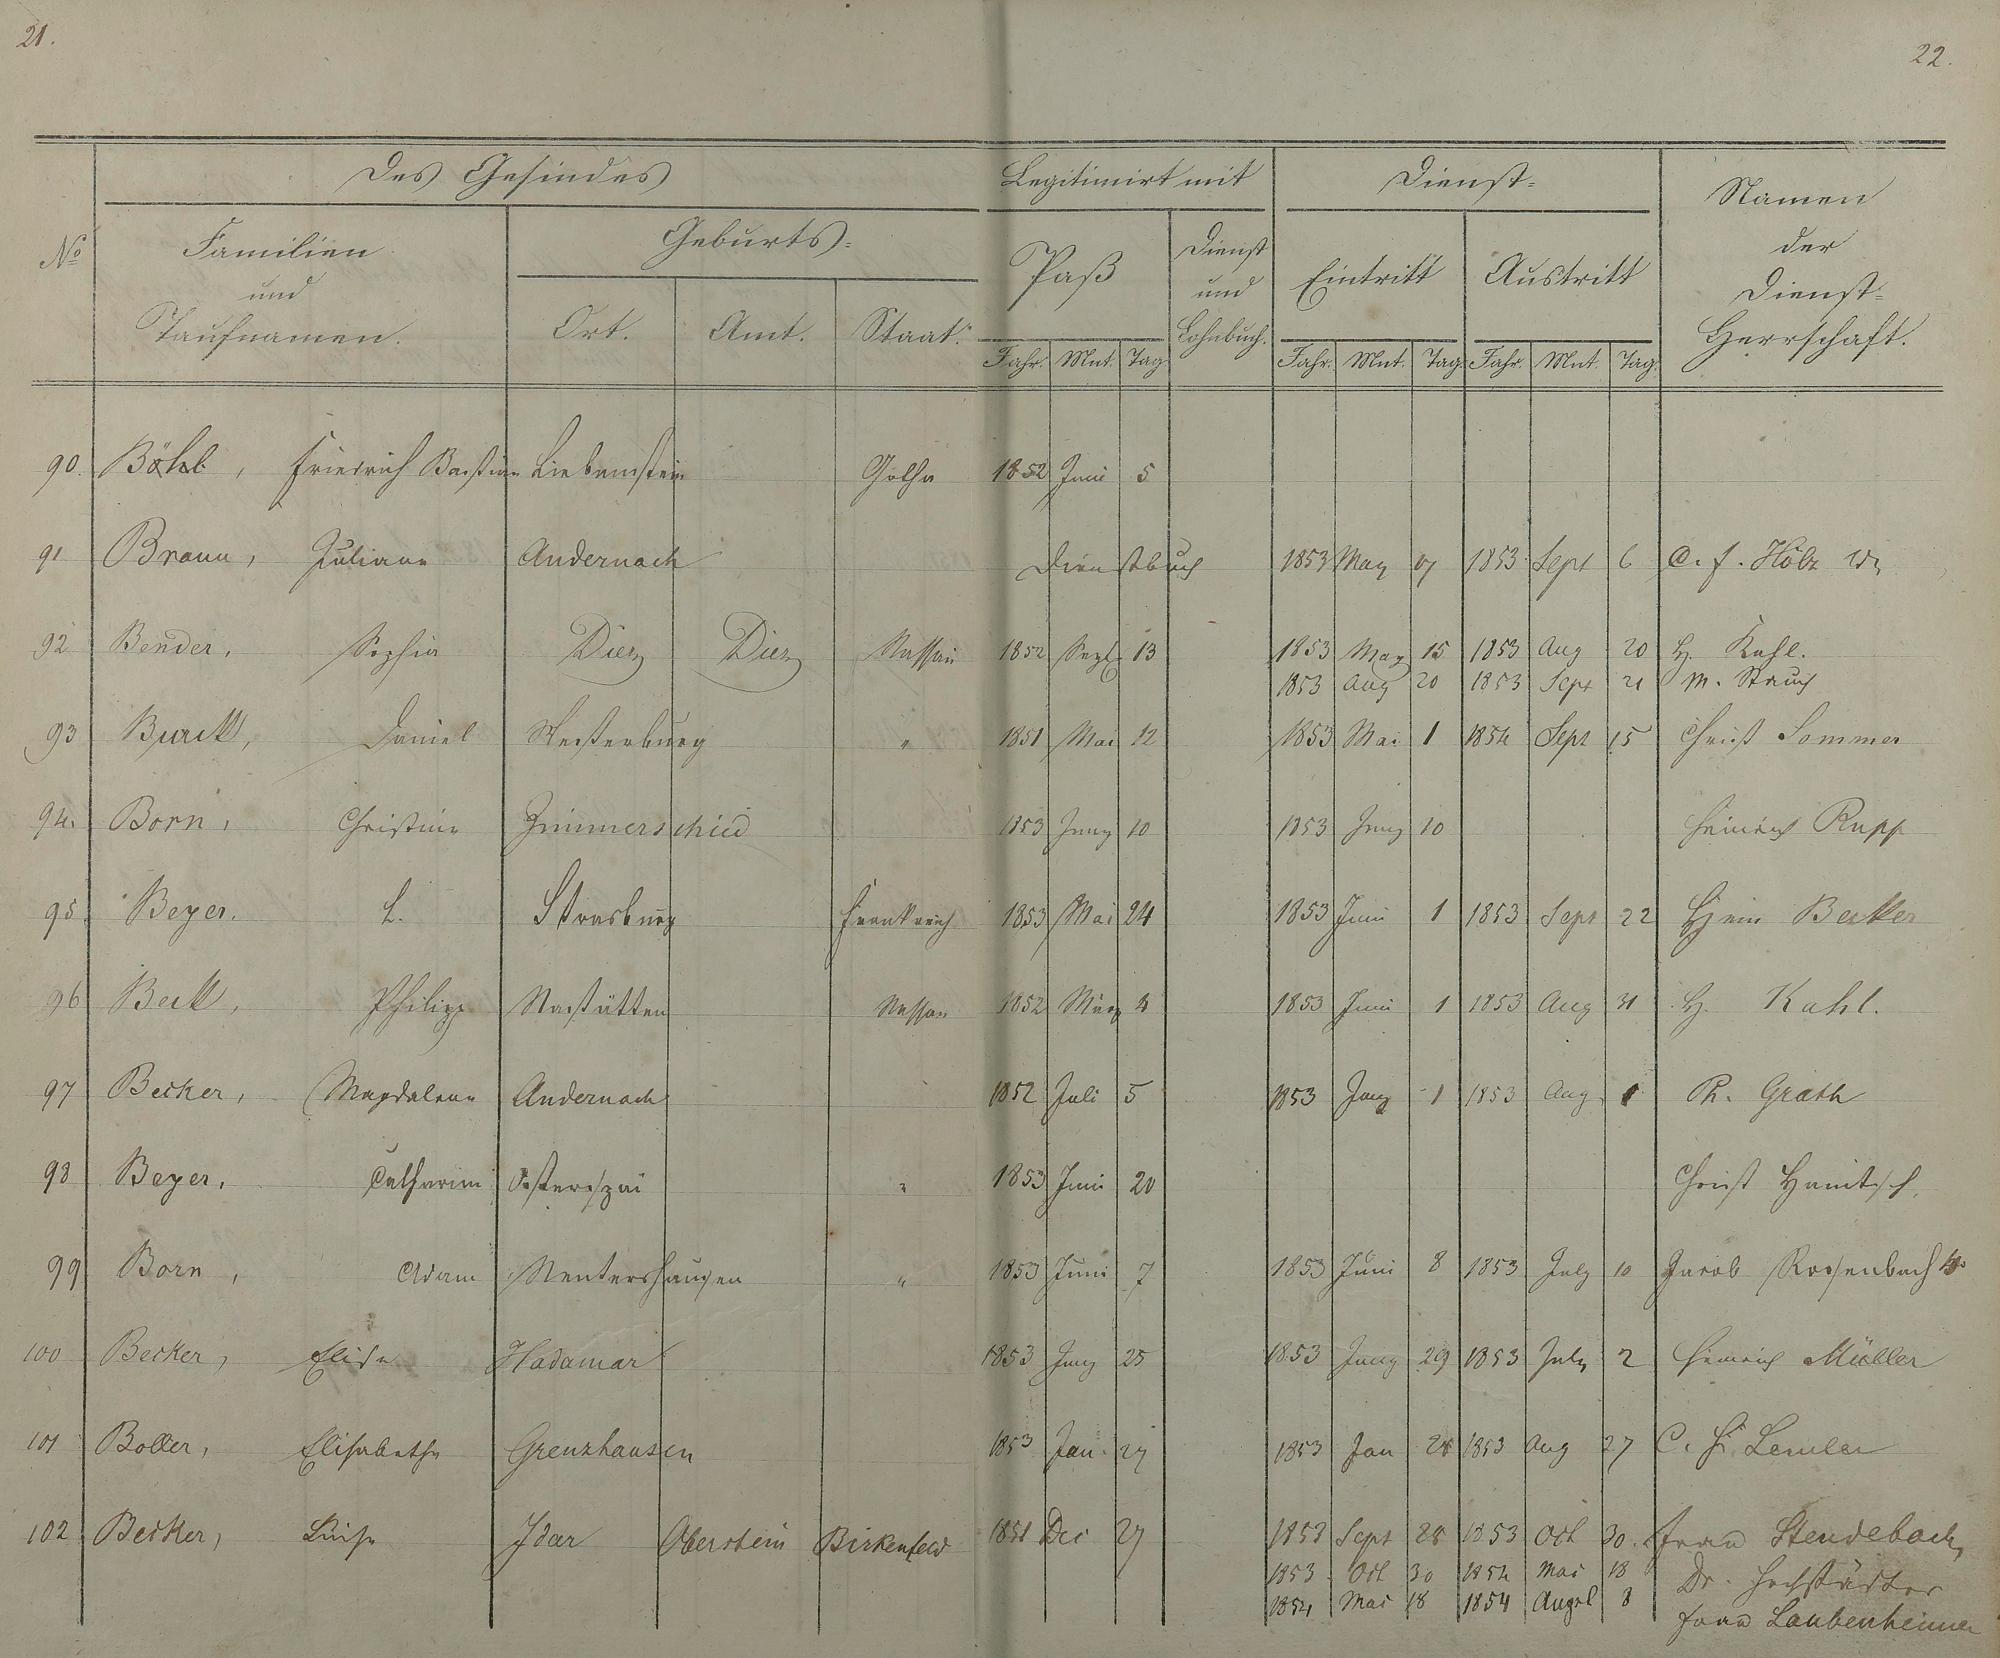 21.
22.
Des Gesindes Legitimirt mit Dienst= Namen der Dienst= Herrschaft.
No Familien und Taufnamen. Geburts= Paß Dienst und Lohnbuch. Eintritt Austritt
Ort. Amt. Staat.
Jahr. Mnt. Tag Jahr. Mnt. Tag. Jahr. Mnt. Tag.
90. Böhl, Friedrich Bastian Liebenstein Gotha 1852 Juni 5
91 Braun, Juliane Andernach Dienstbuch 1853 May 17 1853 Sept 6 C. f. Hölz
92 Bender, Sophia Diez Diez Nassau 1852 Sept 13 1853 May 15 1853 Aug 20 H. Kahl.
1853 Aug 20 1853 Sept 21 M. Strauch
93 Burck, Daniel Westerburg " 1851 Mai 12 1853 Mai 1 1854 Sept 15 Christ Sommer
94. Born, Christine Zimmerschied 1853 Juny 10 1853 Juny 10 Heinrich Rupp
95. Beyer. L. Strasburg Frankreich 1853 Mai 24 1853 Juni 1 1853 Sept 22 Becker
96 Beck, Philipp Nastätten Nassau 1852 März 8 1853 Juni 1 1853 Aug 31 H. Kahl.
97 Becker, Magdalena Andernach 1852 Juli 5 1853 Juny 1 1853 Aug 1 Ph. Grath
98 Beyer, Catharina Osterspai " 1853 Juni 20 Christ
99 Born, Adam Nentershausen " 1853 Juni 7 1853 Juni 8 1853 July 10 Jacob
100 Becker, Elise Hadamar 1853 Juny 25 1853 Juny 29 1853 July 2 Heinrich Müller
101 Boller, Elisabetha Grenzhausen 1853 Jan. 27 1853 Jan 28 1853 Aug 27 C. H.
102 Becker, Luise Idar Oberstein Birkenfeld 1851 Dec 27 1853 Sept 28 1853 Oct 30. Frau Stendebach,
1853 Oct 30 1854 Mai 18 Dr. Hochstädter
1854 Mai 18 1854 Augst 8 Frau Laubenheimer